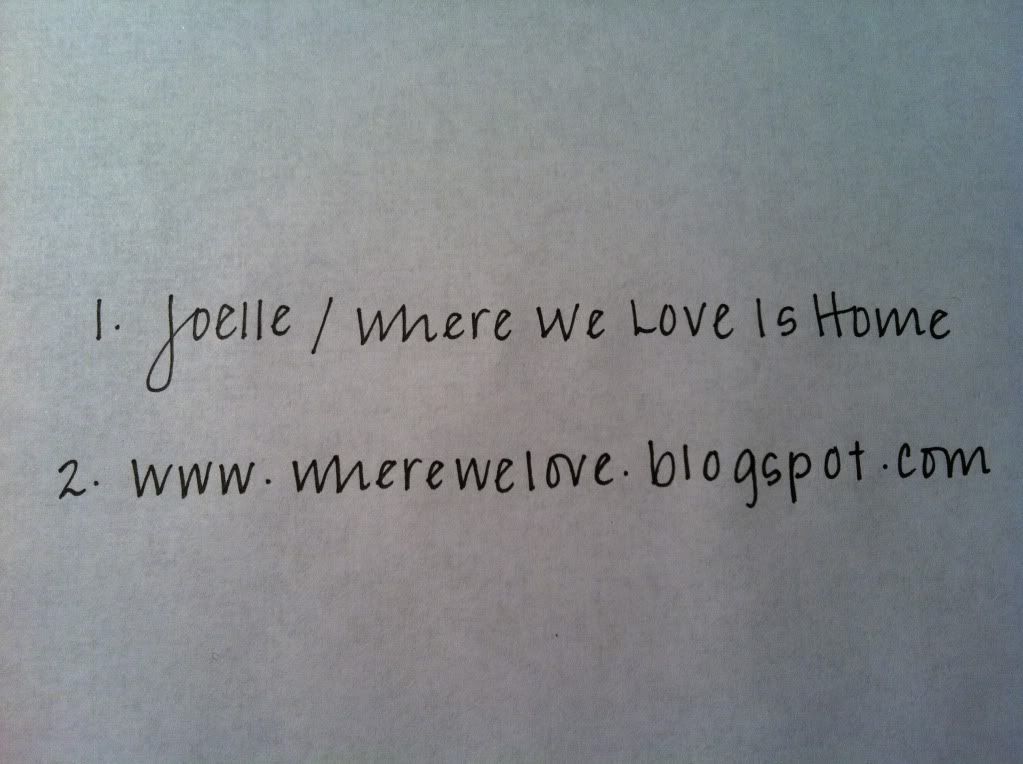 1. Joelle / Where We Love Is Home
2. www.wherewelove.blogspot.com